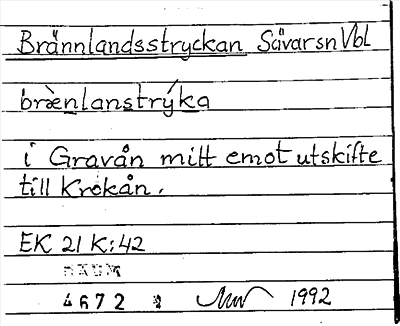 Brännlandsstryckan Sävarsn Vbl
brὲnlanstrýka
i Gravån mitt emot utskifte
till Krokån.
EK 21 K:42
DAUM
4672 1992